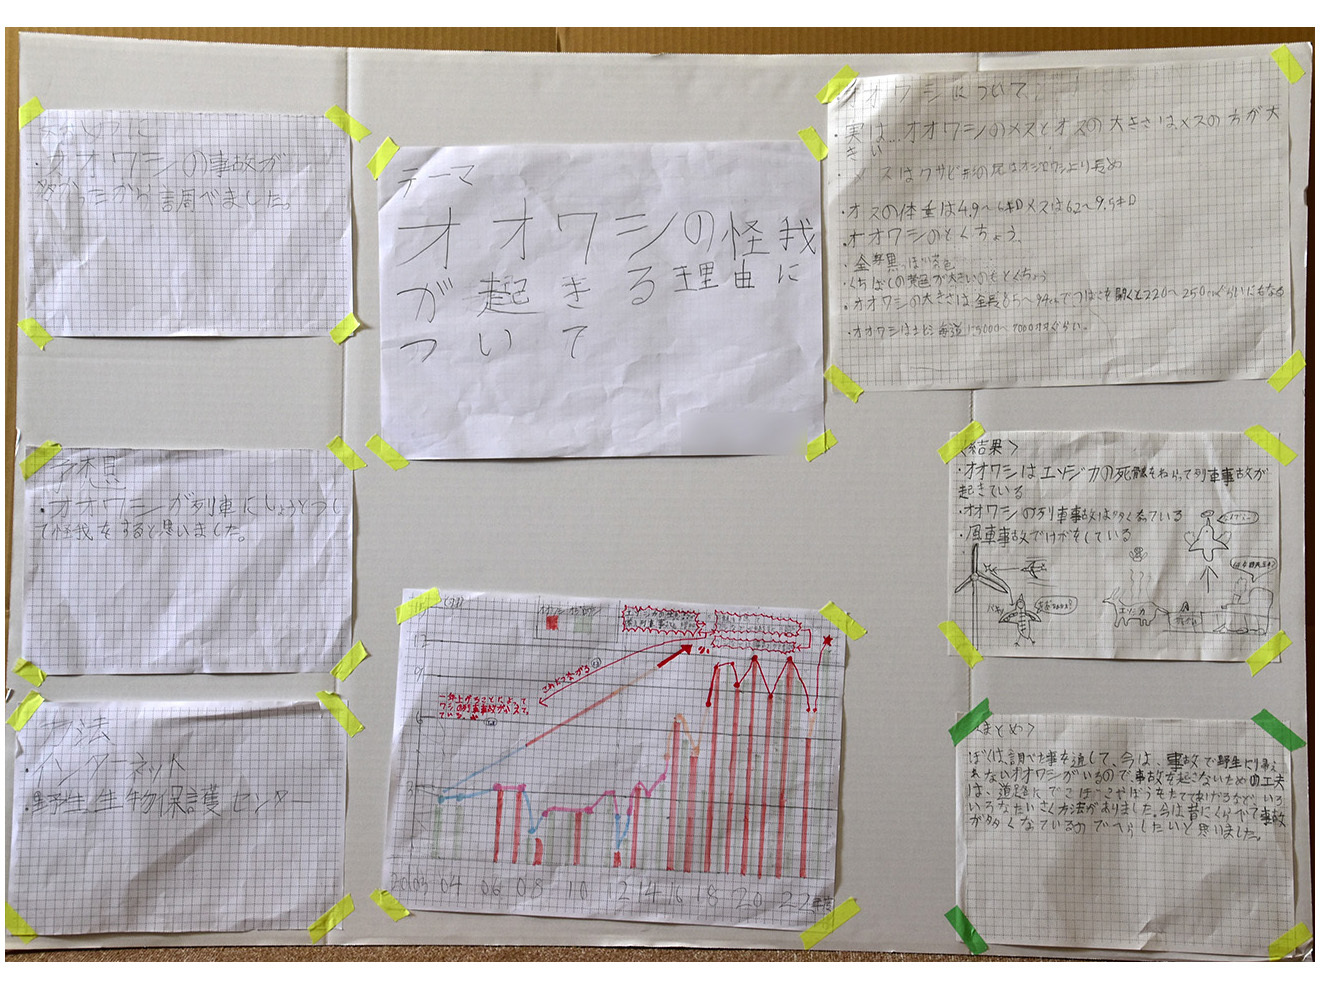 テーマ
オオワシの怪我
が起きる理由に
ついて
はじめに
・オオワシの事故が
多かったから調べました。
予想
・オオワシが列車にしょうとつし
て怪我をすると思いました。
方法
・インターネット
・野生生物保護センター
オオワシについて
・実は…オオワシのメスとオスの大きさはメスの方が大
きい
スはクサビ形の尾はオジロワシより長め
・オスの体重は4.9〜6キロメスは6.2〜9.5キロ
・オオワシのとくちょう、
・全身黒っぽい茶色
・くちばしの黄色が大きいのもとくちょう
・オオワシの大きさは全長85〜94cmでつばさを開くと220〜250cmぐらいにもなる
・オオワシは北海道に5000〜7000
12
9
6
3
2003 04 06 08 10 12 14 16 18 20 22年度
これにつながる
一年上がることによって
ワシの列車事故がふえて
<結果>
・オオワシはエゾジカの死骸をねらって列車事故が
起きている
・オオワシの列車事故は多くなっている
・風車事故でけがをしている
エゾシカ
<まとめ>
ぼくは、調べた事を通して、今は、事故で野生に帰え
れないオオワシがいるので、事故が起こないための工夫
は、道路にでこぼこやぼうをたててあげるなど、いろ
いろなたいさく方法がありました。今は昔にくらべて事故
が多くなているのでへらしたいと思いました。